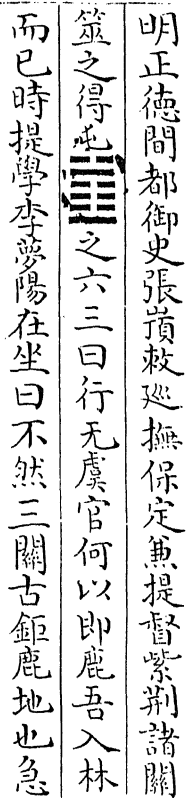 明正德間都御史張嵿敕廵撫保定兼提督紫荆諸關
筮之得屯䷂之六三曰行无虞官何以即鹿吾入林
而已時提學李夢陽在坐曰不然三關古鉅鹿地也急